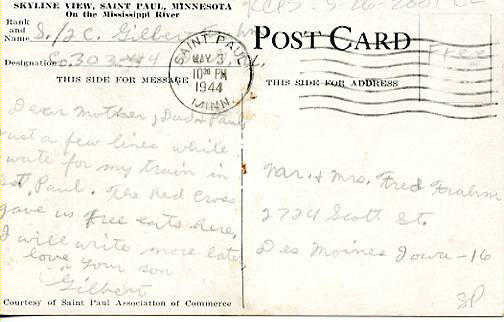 SKYLINE VIEW, SAINT PAUL, MINNESOTA
On the Mississippi River
Rank
and
Name S./2C. Gilbert
Designation Co. 303-44
SAINT PAUL,
MAY 3
10 30 PM
1944
MINN.
POST CARD
Free
THIS SIDE FOR MESSAGE
THIS SIDE FOR ADDRESS
Dear Mother, Dad & Paul
Just a few lines while
wait for my train in
St. Paul. The Red Cross
gave us free eats here,
I will write more later
love your son
Gilbert
Mr. & Mrs. Fred Frahm
2724 Scott St.
Des Moines Iowa - 16
SP
Courtesy of Saint Paul Association of Commerce